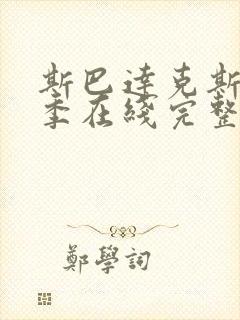 斯巴達克斯
季在綫完整
鄭學詞